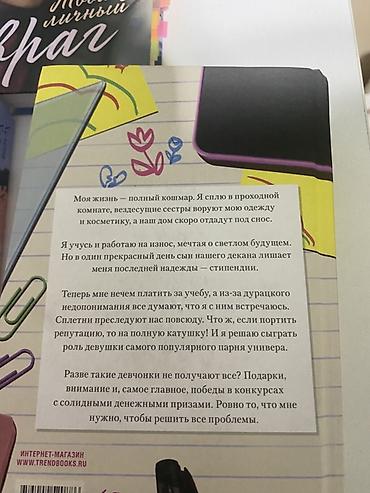 личный
враг
Моя жизнь — полный кошмар. Я сплю в проходной
комнате, вездесущие сестры воруют мою одежду
и косметику, а наш дом скоро отдадут под снос.
Я учусь и работаю на износ, мечтая о светлом будущем.
Но в один прекрасный день сын нашего декана лишает
меня последней надежды — стипендии.
Теперь мне нечем платить за учебу, а из-за дурацкого
недопонимания все думают, что я с ним встречаюсь.
Сплетни преследуют нас повсюду. Что ж, если портить
репутацию, то на полную катушку! И я решаю сыграть
роль девушки самого популярного парня универа.
Разве такие девчонки не получают все? Подарки,
внимание и, самое главное, победы в конкурсах
с солидными денежными призами. Ровно то, что мне
нужно, чтобы решить все проблемы.
ИНТЕРНЕТ-МАГАЗИН
WWW.TRENDBOOKS.RU